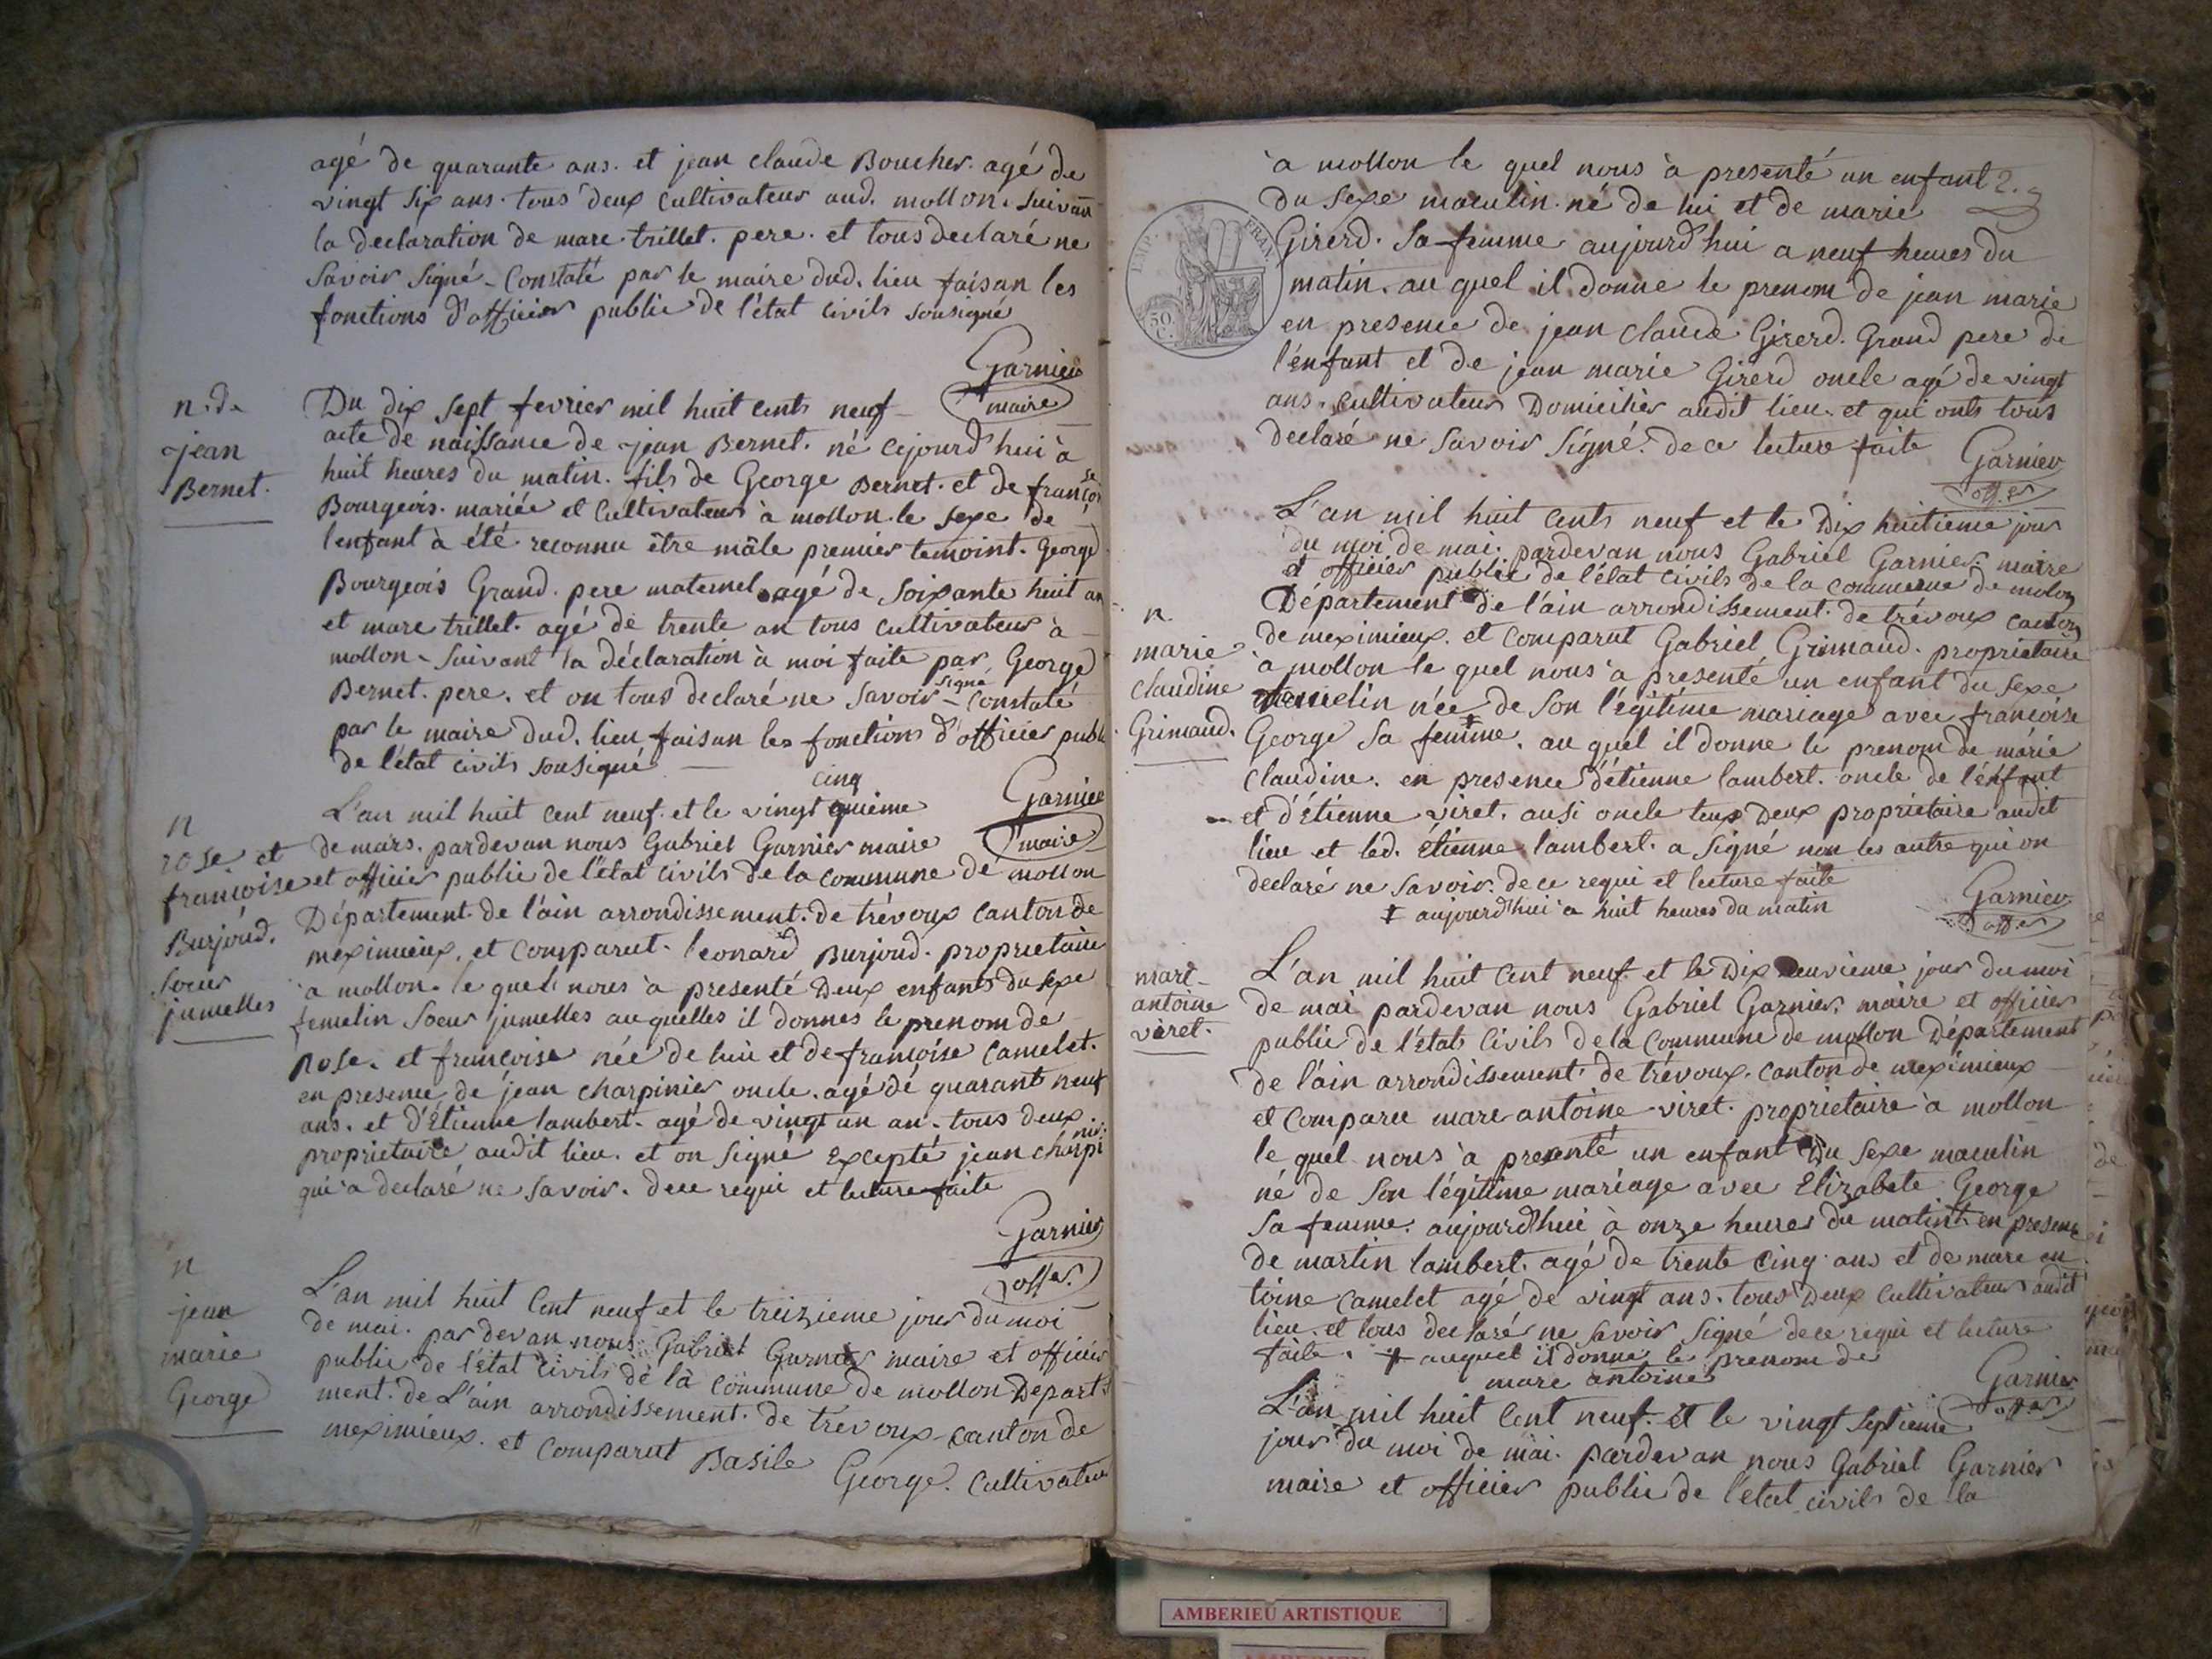 agé de quarante ans. et jean claude Boucher. agé de
vingt six ans. tous deux cultivateur aud. mollon. suivan
la declaration de marc trillet. pere. et tous declaré ne
savoir signé - Constaté par le maire dud. lieu faisan les
fonctions d'officier public de l'état civils sousigné
Garnier
maire
n. de
jean
Bernet.
Du dix sept fevrier mil huit cents neuf
acte de naissance de jean Bernet. né cejourd'hui à
huit heures du matin. fils de George Bernet. et de françoise
Bourgeois. mariée et Cultivateur à mollon. le sexe de
lenfant à été reconnu être mâle premier temoint. George
Bourgeois Grand. pere maternel agé de soixante huit an
et marc trillet. agé de trente an tous cultivateur à
mollon - suivant la déclaration à moi faite par George
Bernet. pere. et on tous declaré ne savoir signé - Constaté
par le maire dud. lieu faisan les fonctions d'officier publi
de l'état civils sousigné
Garnier
maire
n
rose et
françoise
Burjoud.
soeur
jumelles
L'an mil huit cent neuf. et le vingt cinq
de mars. pardevan nous Gabriel Garnier maire
et officier public de l'état civils de la commune de mollon
Département de l'ain arrondissement. de trévoux canton de
meximieux, et comparut. leonard Burjoud. proprietaire
a mollon. le quel nous à presenté Deux enfants du sexe
femelin soeur jumelles auquelles il donnes le prenom de
Rose. et françoise née de lui et de françoise Camelet.
en presence de jean charpinier oncle. agé de quarant neuf
ans. et d'Étienne lambert. agé de vingt un an. tous deux
proprietaire audit lieu. et on signé Excepté jean charpinier.
qui a declaré ne savoir. dece requi et lecture faite
Garnier
offer.
n
jean
marie
George
L'an mil huit Cent neuf et le treizieme jour du moi
de mai. par devan nous Gabriel Garnier maire et officier
public de l'état civils de la commune de mollon Départ
ment. de L'ain arrondissement. de trevoux canton de
meximieux. et Comparut Basile George. Cultivateur
à mollon le quel nous à presenté un enfant 2.
du sexe maculin. né de lui et de marie
Girerd. sa femme aujourd'hui a neuf heures du
matin. au quel il donne le prenom de jean marie
en presence de jean claude Girerd. Grand pere de
l'enfant et de jean marie Girerd oncle agé de vingt
ans. cultivateur Domicilier audit lieu. et qui onts tous
declaré ne savoir signé. de ce lecture faite
Garnier
offer
EMP. FRAN.
50
C.
n
marie
claudine
Grimaud.
L'an mil huit Cents neuf et le Dix huitieme jour
du moi de mai. pardevan nous Gabriel Garnier. maire
et officier public de l'état civils de la commune de molon
Département de l'ain arrondissement. de trévoux canton
de meximieux. et comparut Gabriel Grimaud. proprietaire
a mollon le quel nous à presenté un enfant du sexe
femelin née ‡ de son légitime mariage avec françoise
George sa femme. au quel il donne le prenom de marie
claudine. en presence d'étienne lambert. oncle de l'enfant
et d'étienne viret. ausi oncle tous Deux proprietaire audit
lieu et led. étienne lambert. a signé non les autre qui on
declaré ne savoir. de ce requi et lecture faite
‡ aujourd'hui a huit heures du matin
Garnier
offer
marc
antoine
viret.
L'an mil huit Cent neuf. et le Dix neuvieme jour du moi
de mai pardevan nous Gabriel Garnier. maire et officier
public de l'états Civils de la Commune de mollon Département
de l'ain arrondissement de trévoux. canton de meximieux
et Comparu marc antoine viret. proprietaire à mollon
le quel nous à presenté un enfant Du sexe maculin
né de son légitime mariage avec Elizabete George
sa femme. aujourd'hui à onze heures du matin ‡ en presence
de martin lambert. agé de trente cinq ans et de marc an
toine camelet agé de vingt ans. tous Deux cultivateur audit
lieu. et tous declaré ne savoir signé de ce requi et lecture
faite. ‡ auquel il donne le prenom de
marc antoine
Garnier
offer
L'an mil huit Cent neuf. et le vingt septieme
jour du moi de mai. pardevan nous Gabriel Garnier
maire et officier public de l'état civils de la
AMBERIEU ARTISTIQUE